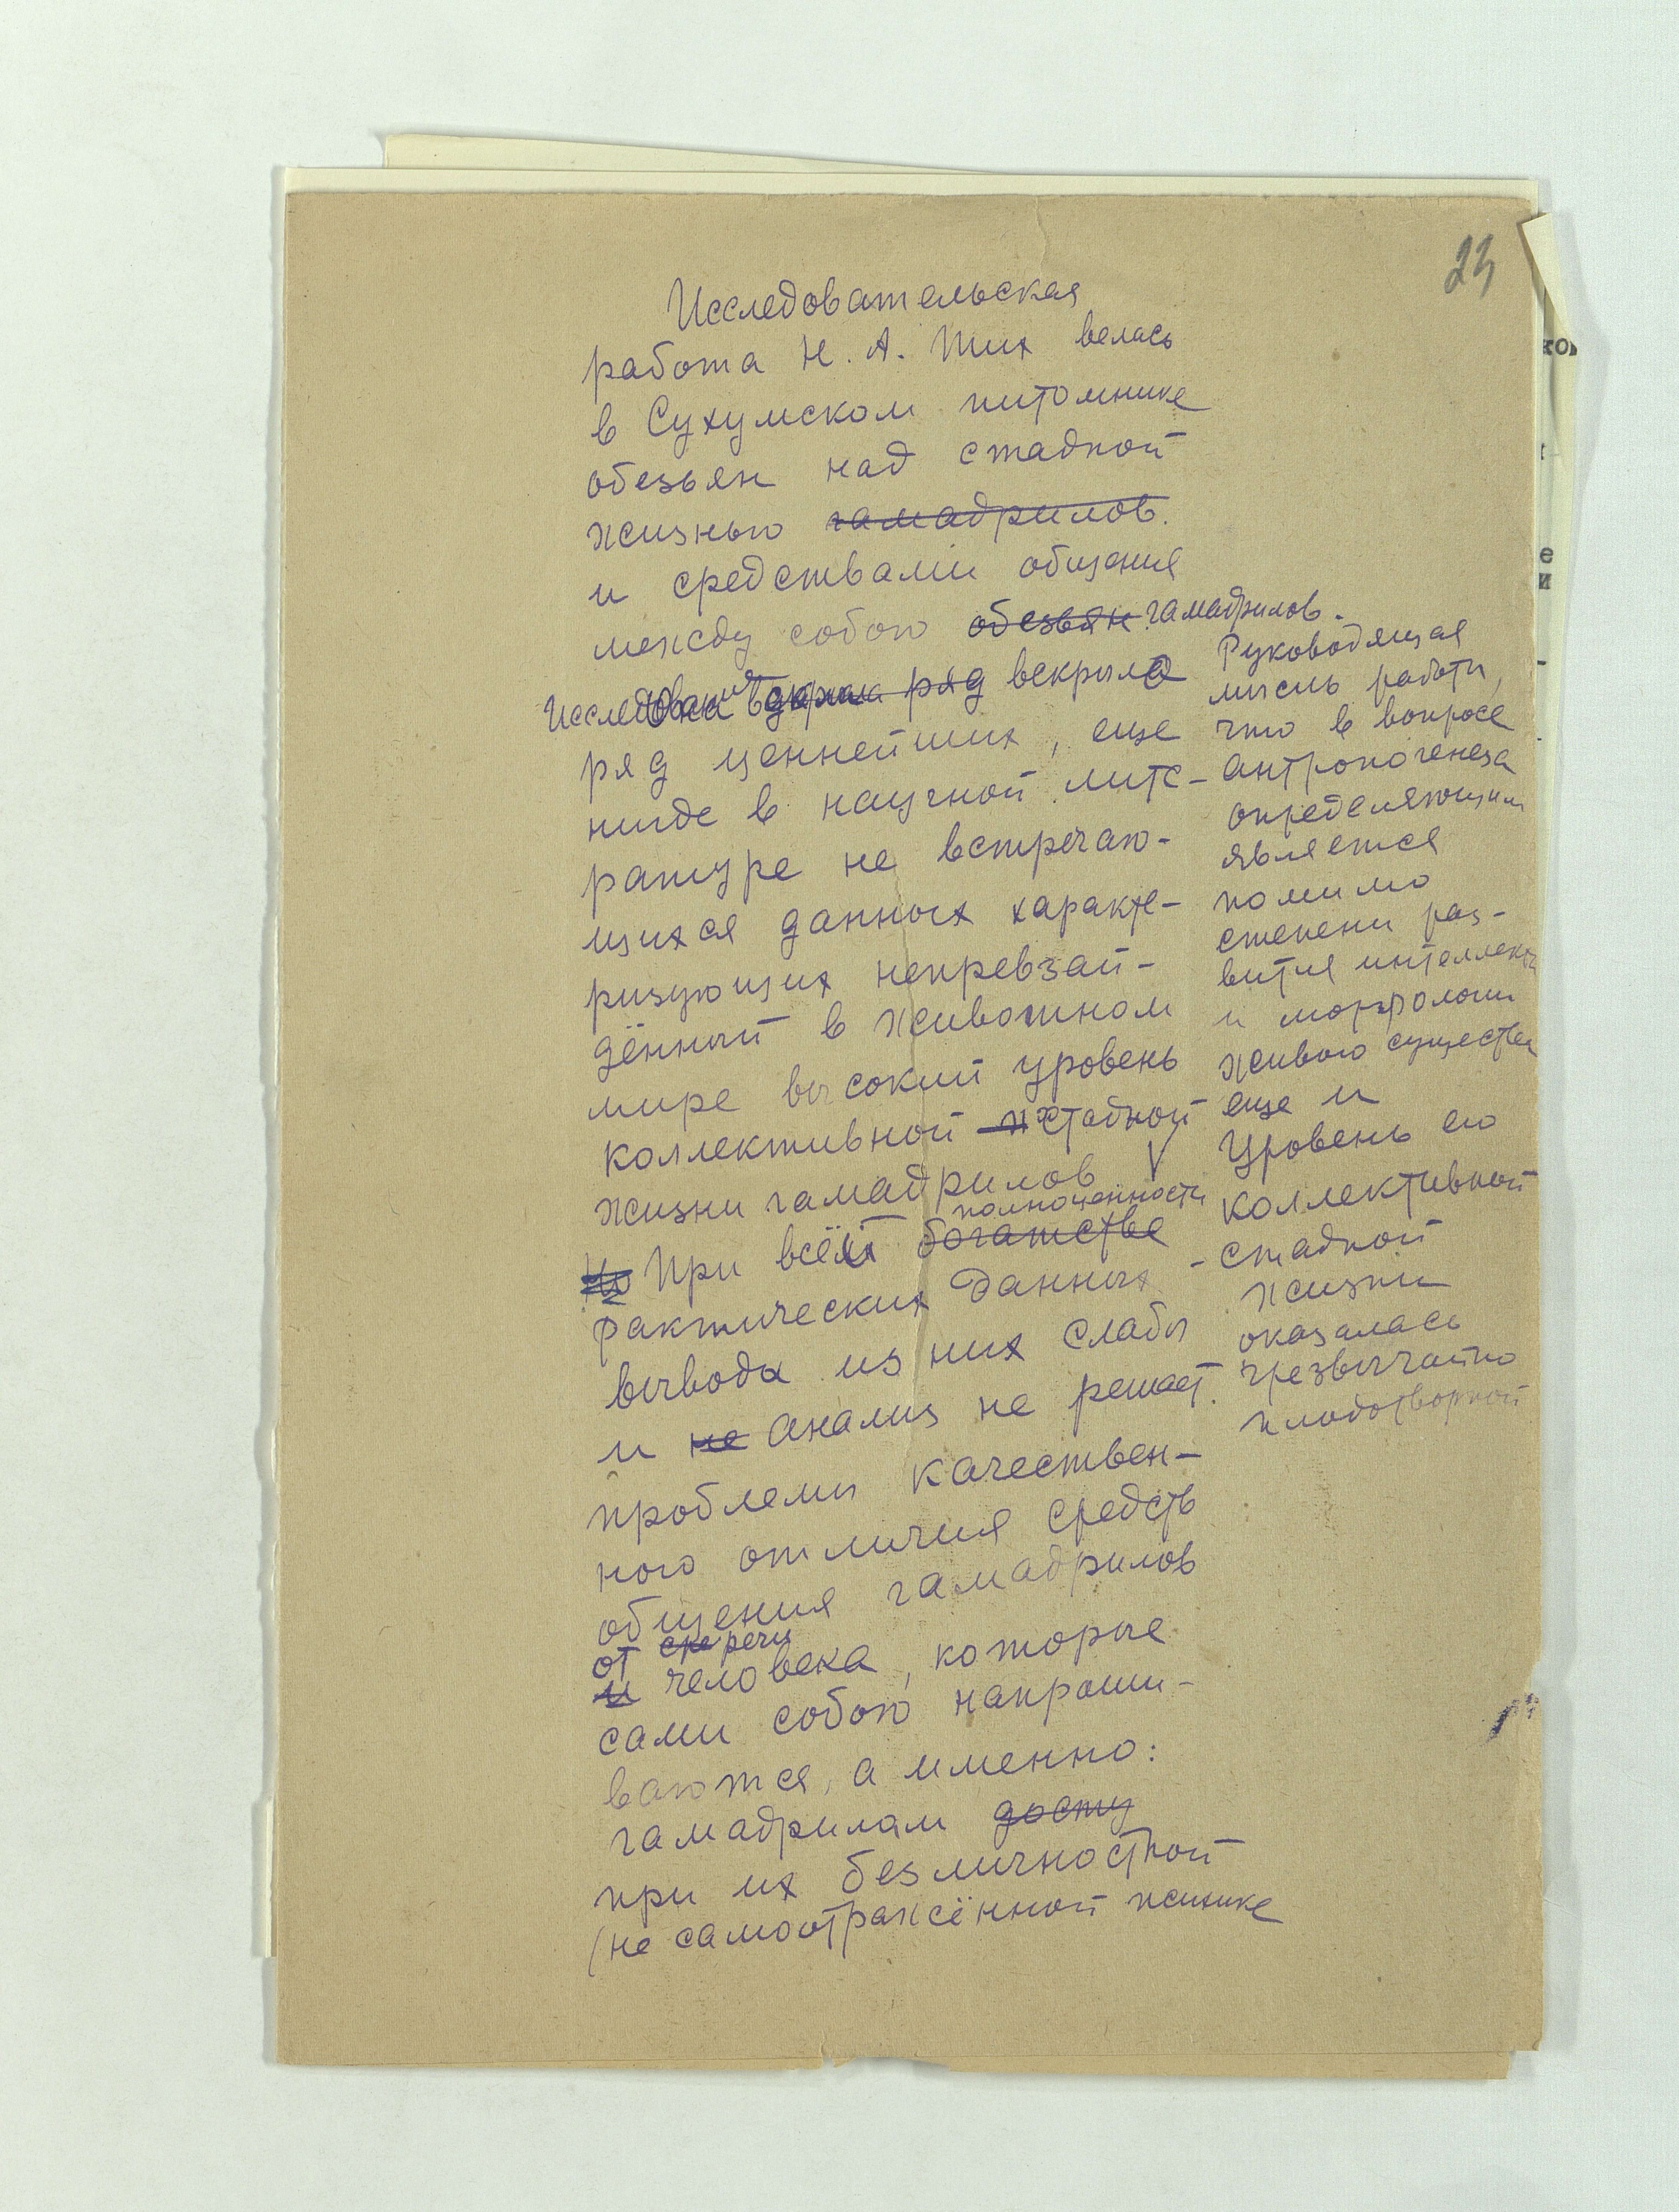 23
Исследовательская
работа Н. А. Тих велась
в Сухумском питомнике
обезьян над стадной
жизнью гамадрилов.
и средствами общения
между собою обезьян гамадрилов.
Исследование ряд вскрыло
ряд ценнейших, еще
нигде в научной лите-
ратуре не встречаю-
щихся данных характе-
ризующих непревзой-
дённый в животном
мире высокий уровень
коллективной стадной
жизни гамадрилов V
полноценности
Но При всей богатстве
фактических данных
выводы из них слабы
и не анализ не решает
проблемы качествен-
ного отличия средств
общения гамадрилов
от речи
и человека, которые
сами собою напраши-
ваются, а именно:
гамадрилам досту
при их безличностной
(не самоотражённой психике
Руководящая
мысль работы,
что в вопросе
антропогенеза
определяющим
является
помимо
степени раз-
вития интеллекта
и морфологии
живого существа
еще и
уровень его
коллективной
- стадной
жизни
оказалась
чрезвычайно
плодотворной